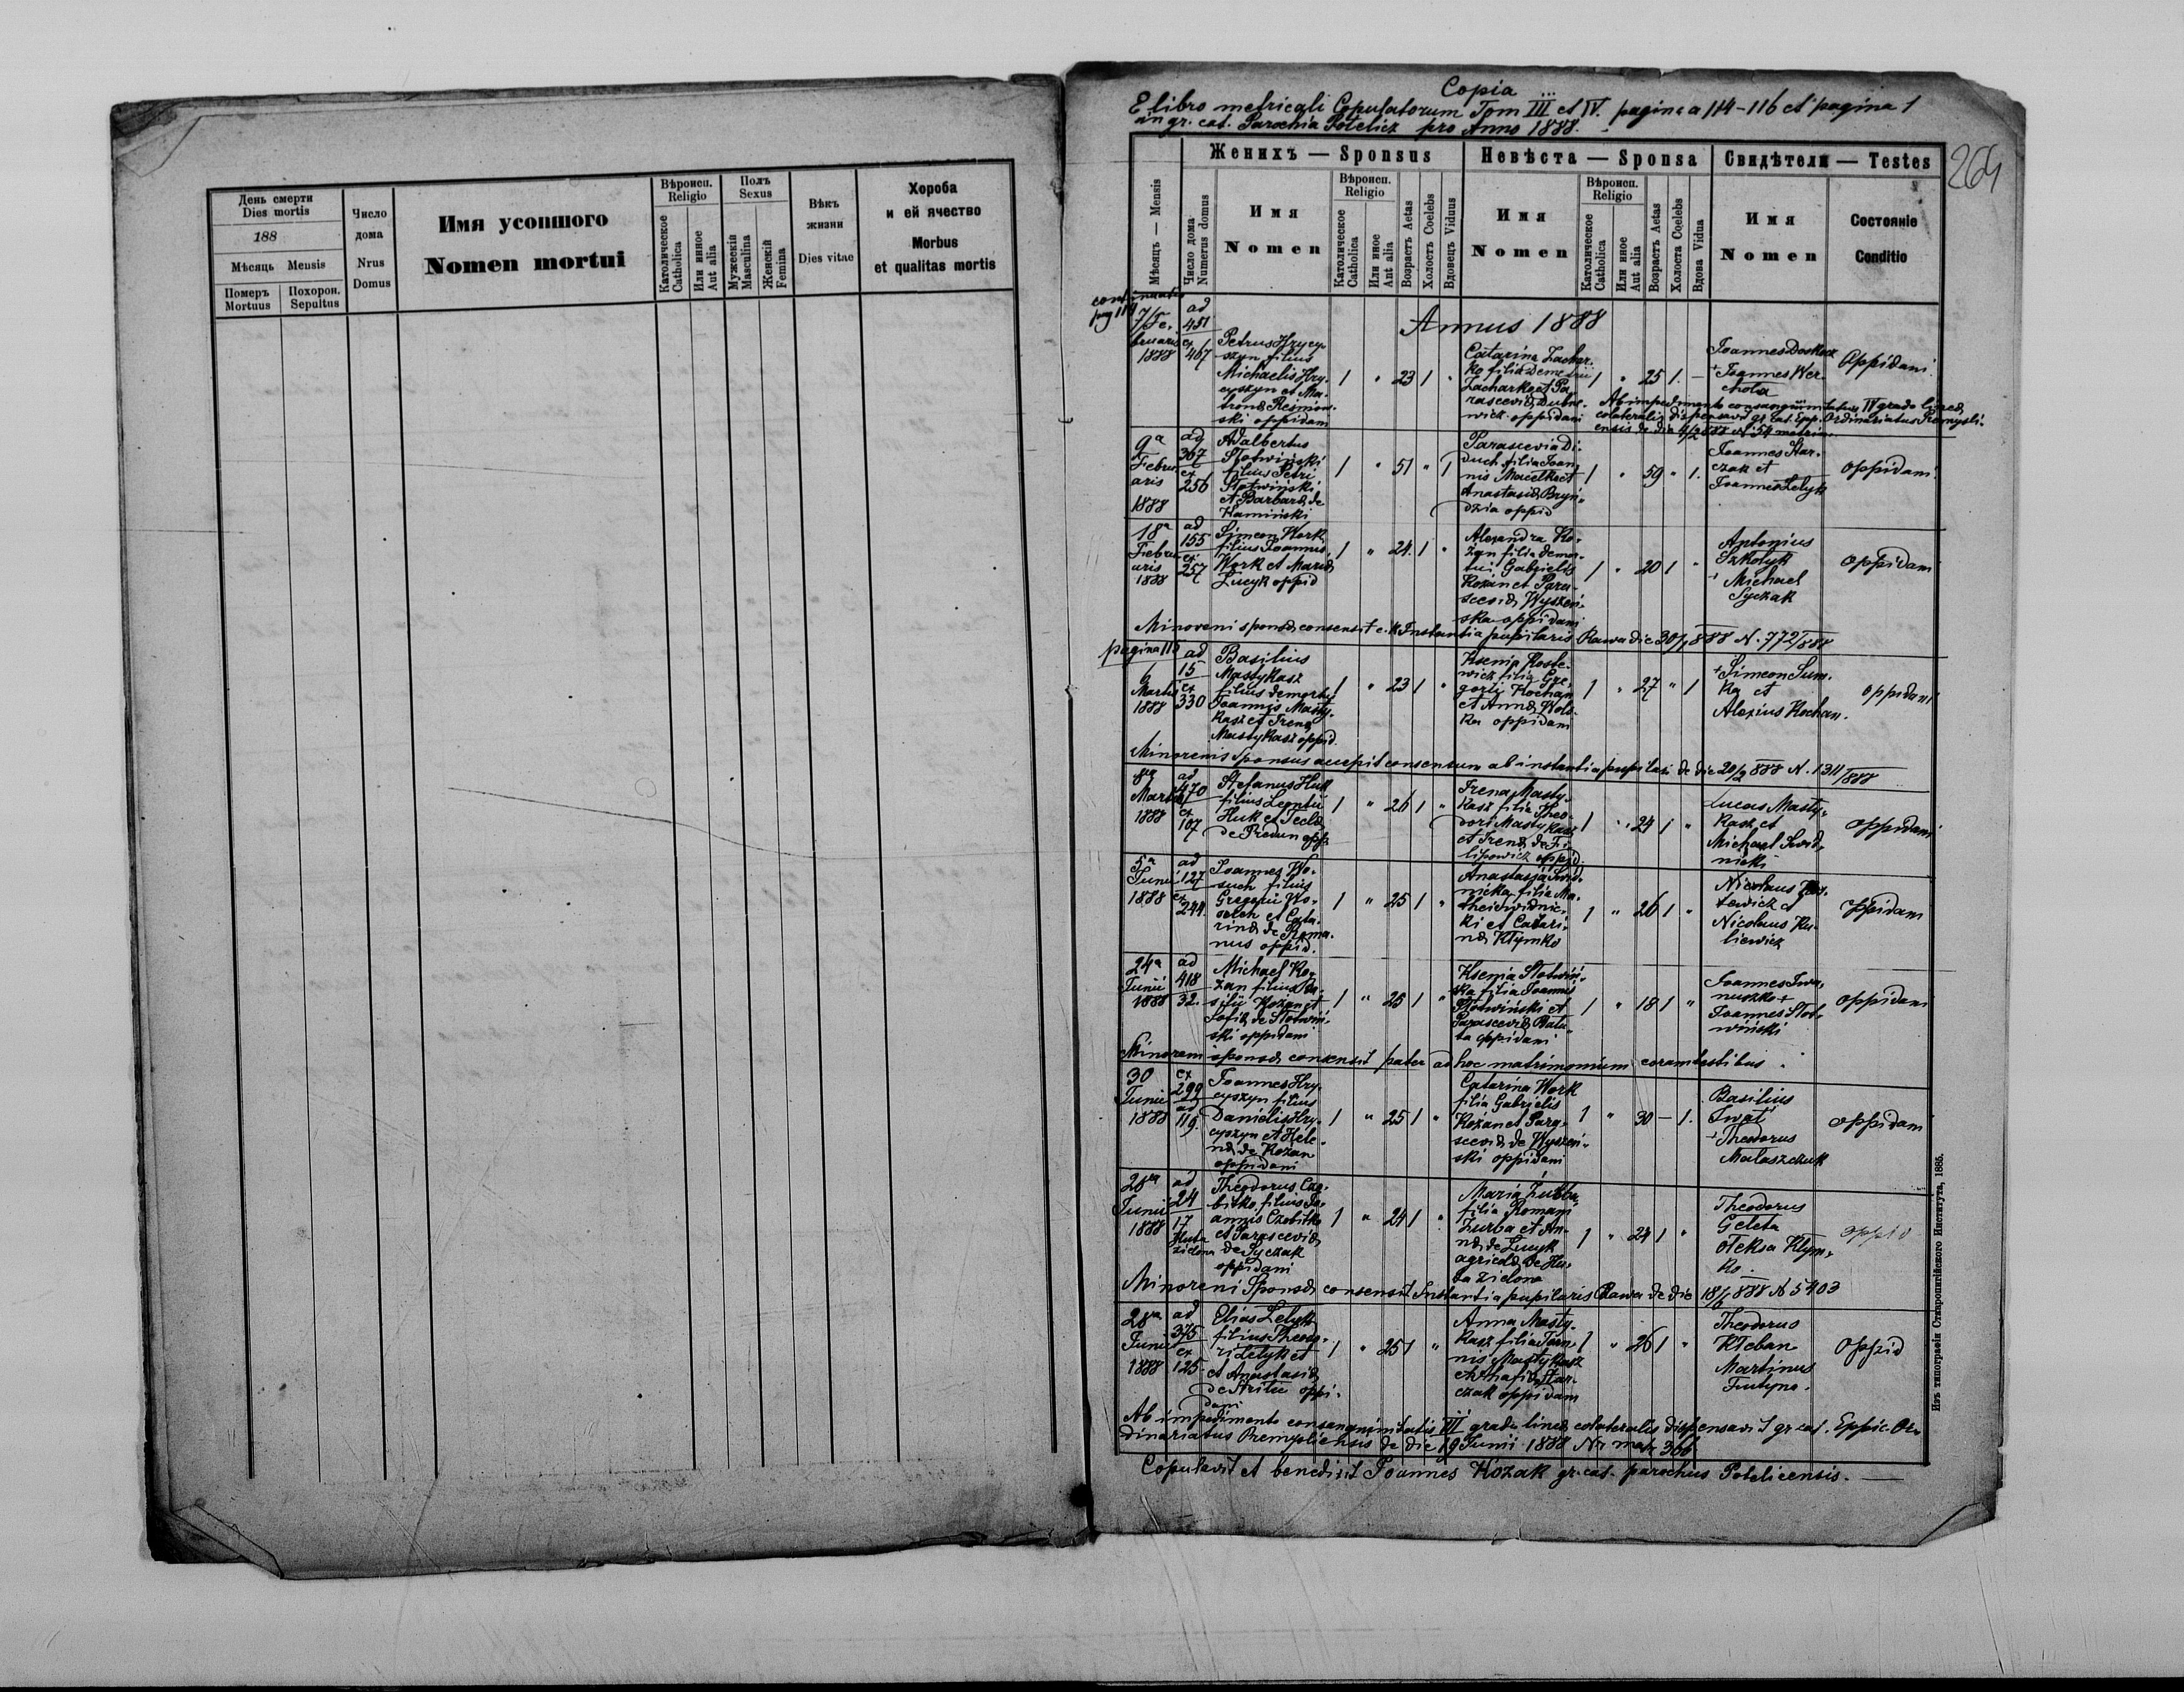 День смерти
Dies mortis
188
Мѣсяць Mensis
Померъ
Mortuus
Похорон.
Sepultus
Число
дома
Nrus
Domus
Имя усопшого
Nomen mortui
Вѣроисп.
Religio
Католическое
Catholica
Или инное
Aut alia
Полъ
Sexus
Мужескій
Masculina
Женскій
Femina
Вѣкъ
жизни
Dies vitae
Хороба
и ей ячество
Morbus
et qualitas mortis
Copia
E libro metricali Copulatorum Tom III et IV. pagina a 114-116 et pagina 1
in gr. cat. Parochia Potelicz pro Anno 1888.
264
Женихъ — Sponsus
Невѣста — Sponsa
Свидѣтели — Testes
Мѣсяць — Mensis
Число дома
Numerus domus
Имя
Nomen
Вѣроисп.
Religio
Католическое
Catholica
Или инное
Aut alia
Возрастъ Aetas
Холостъ Coelebs
Вдовецъ Viduus
Имя
Nomen
Вѣроисп.
Religio
Католическое
Catholica
Или инное
Aut alia
Возрастъ Aetas
Холоста Coelebs
Вдова Vidua
Имя
Nomen
Состояніе
Conditio
Annus 1888
pag 114
7/Fe.
bruaris
1888
ad
451
ex
467
Petrus Hrycy-
szyn filius
Michaelis Hry-
cyszyn et Ma-
ski oppidani
1 " 23 1 "
Catarina Zachar-
ko filia Demetrii
Zacharko et Pa-
rascevia Dubne-
wicz oppidani
1 " 25 1. —
Joannes Doskocz
+ Joannes Wer-
chola
Oppidani
Ab impedimento consanguinitatis IV grado lineae
colateralis dispensavit gr. cat. Epp. Ordinariatus Premysli-
ensis de die 4/2 888 N 54 matrim.
9a
Febru
aris
1888
ad
367
ex
256
Adalbertus
Słotwiński
filius Petri
Słotwiński
et Barbara de
Kamiński
1 " 51 " 1
Parascevia Di-
duch filia Joan-
nis Maciełko et
Anastasia Bryn-
dzia oppid
1 " 59 " 1.
Joannes Star-
czak et
Joannes Lelyk
oppidani
18a
Febru
aris
1888
ad
155
ex
257
Simeon Work
filius Joannis
Work et Maria
Lucyk oppid
1 " 24. 1 "
Alexandra Ko-
zan filia demor-
tui Gabrielis
Kozan et Para-
scevia Wyszeń-
ska oppidani
1 " 20 1 "
Antonius
Szkolyk
+ Michael
Syczak
oppidani
Minoreni sponsae consensit c. k. Instantia pupilaris Rawa die 30/1 888 N. 772/888
pagina 115
6
Martii
1888
ad
15
ex
330
Basilius
Mastykasz
filius demortui
Joannis Masty-
kasz et Irena
Mastykasz oppid.
1 " 23 1 "
Ksenia Koste-
wicz filia Gre-
gorii Kochan
et Anna Wols-
ka oppidani
1 " 27 " 1
+ Simeon Sum-
ka et
Alexius Kochan.
oppidani
Minorenis Sponsus accepit consensum ab instantia pupilari de die 20/2 888 N. 1311/888
8a
Martii
1888
ad
470
ex
107
Stefanus Huk
filius Leontii
Huk et Tecla
de Predun opp.
1 " 26 1 "
Irena Masty-
kasz filia Theo-
dori Mastykasz
et Irena de Fi-
lipowicz oppid.
1 " 24 1 "
Lucas Masty-
kasz et
Michael Swid-
nicki
oppidani
5a
Junii
1888
ad
127
ex
244.
Joannes Wo-
such filius
Gregorii Wo-
et Cata-
rina de Roma-
nus oppid.
1 " 25 1 "
Anastasia Swid-
nicka filia Ma-
thei Swidnic-
ki et Catari-
na Kłymko
1 " 26 1 "
Nicolaus
Nicolaus Ku-
liewicz
oppidani
24a
Junii
1888
ad
418
32.
Michael Ko-
zan filius Ba-
silii Kozan et
Sofia de Słotwiń-
ski oppidani
1 " 25 1 "
Ksenia Słotwiń-
ska filia Joannis
Słotwiński et
Parascevia Bała-
ta oppidani
1 " 18 1 "
Joannes Iwa-
nuszko +
Joannes Słot-
wiński
oppidani
Minoreni sponsae consensit pater ad hoc matrimonium coram testibus.
30
Junii
1888
ex
299
ad
119.
Joannes Hry-
cyszyn filius
Danielis Hry-
cyszyn et Hele-
na de Kozan
oppidani
1 " 25 1 "
Catarina Work
filia Gabrielis
Kozan et Para-
scevia de Wyszeń-
ski oppidani
1 " 30 — 1.
Basilius
Iwat
+ Theodorus
Małaszczuk
oppidani
28a
Junii
1888
ad
24
17
Huta
zielona
Theodorus Czo-
bitko filius Jo-
annis Czobitko
et Parascevia
de Syczak
oppidani
1 " 24 1 "
Maria Zurba
filia Romani
Zurba et An-
na de Lucyk
agricola de Hu-
ta zielona
1 " 24 1 "
Theodorus
Geleta
Ołeksa Kłym-
ko.
oppid
Minoreni Sponsae consensit Instantia pupilaris Rawa de die 18/6 888 N 5403
28a
Junii
1888
ad
375
ex
125
Elias Lelyk
filius Theodo-
ri Lelyk et
et Anastasia
de Hritu oppi-
dani
1 " 25 1 "
Anna Masty-
kasz filia Joan-
nis Mastykasz
et Anastasia Star-
czak oppidani
1 " 26 1 "
Theodorus
Kłeban
Martinus
Futyno.
Oppid
Ab impedimento consanguinitatis III grado lineae colateralis dispensavit gr. cat. Eppic. Or-
dinariatus Premysliensis de die 19 Junii 1888 Nr matr 366
Copulavit et benedixit Joannes Kozak gr. cat. parochus Potelicensis.
Изъ типографіи Ставропигійского Института, 1885.